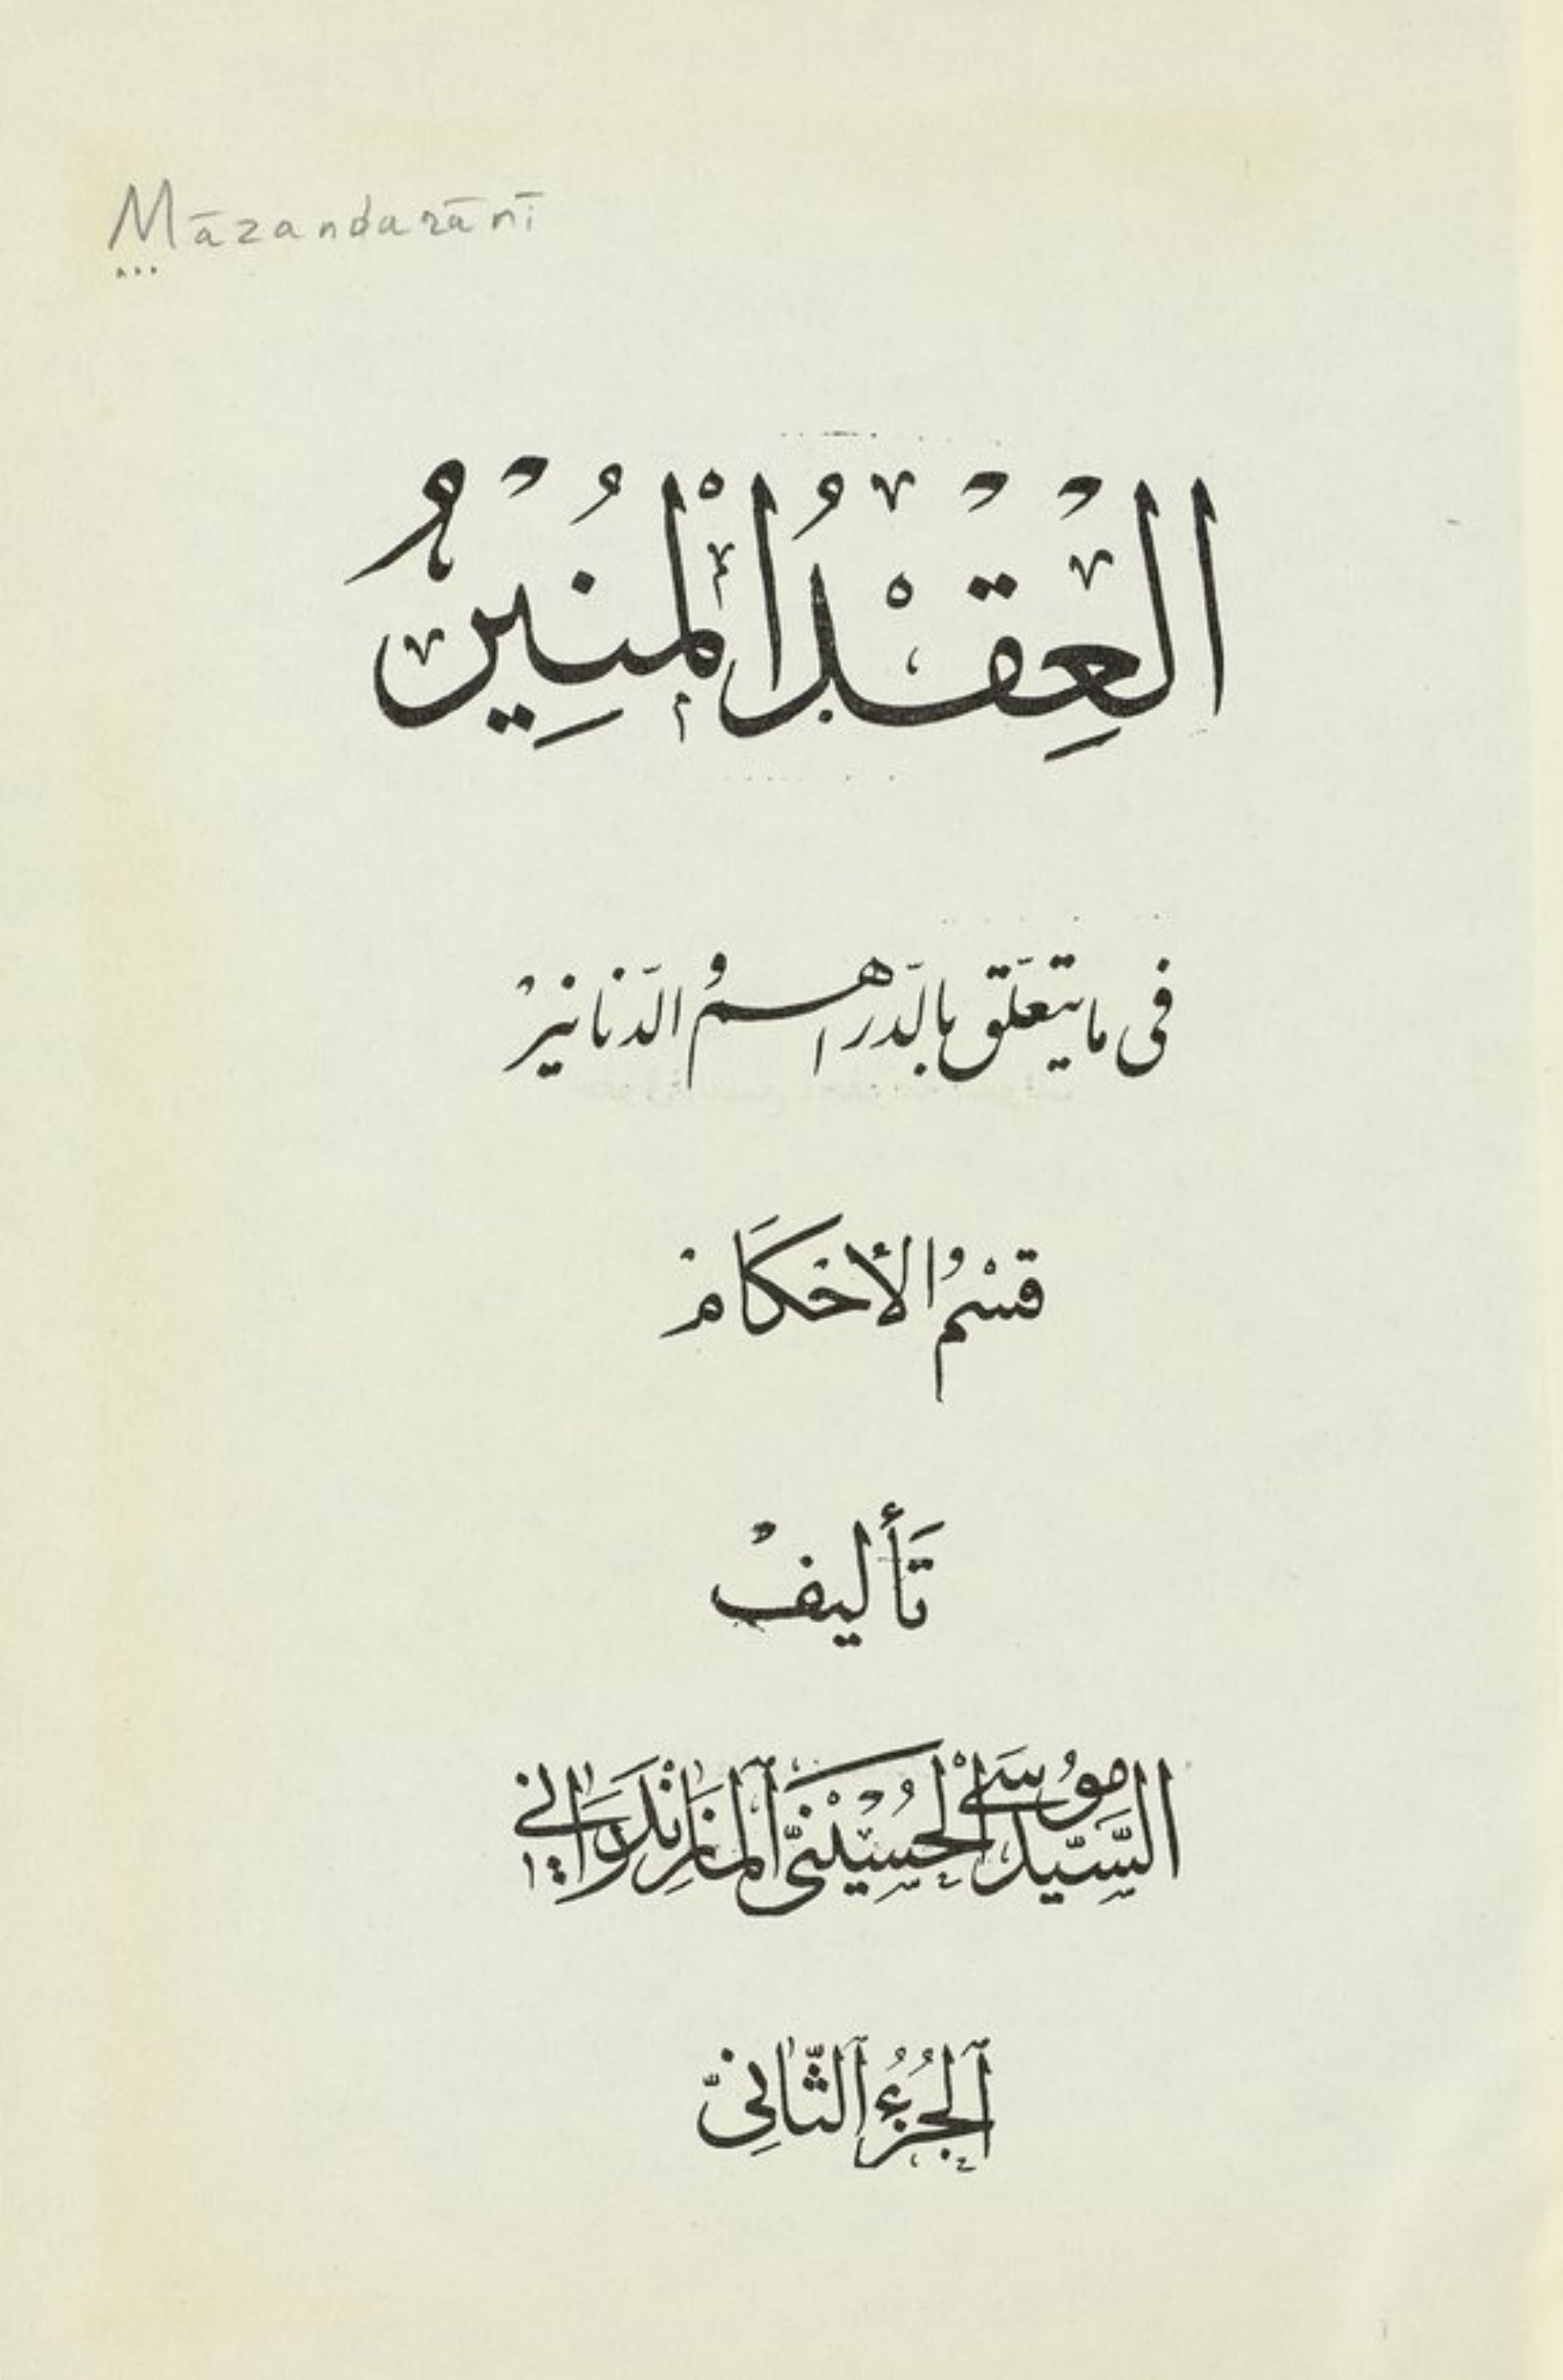 Māzandarānī
العِقْدُ الْمُنِيرُ
فى ما يتعلّق بالدّراهم و الدّنانير
قسْمُ الأحكام
تَأليف
السَّيِّد مُوسَى الْحُسَيْنىّ المازَنْدَرانى
اَلجُزءُ اَلثّانِىّ